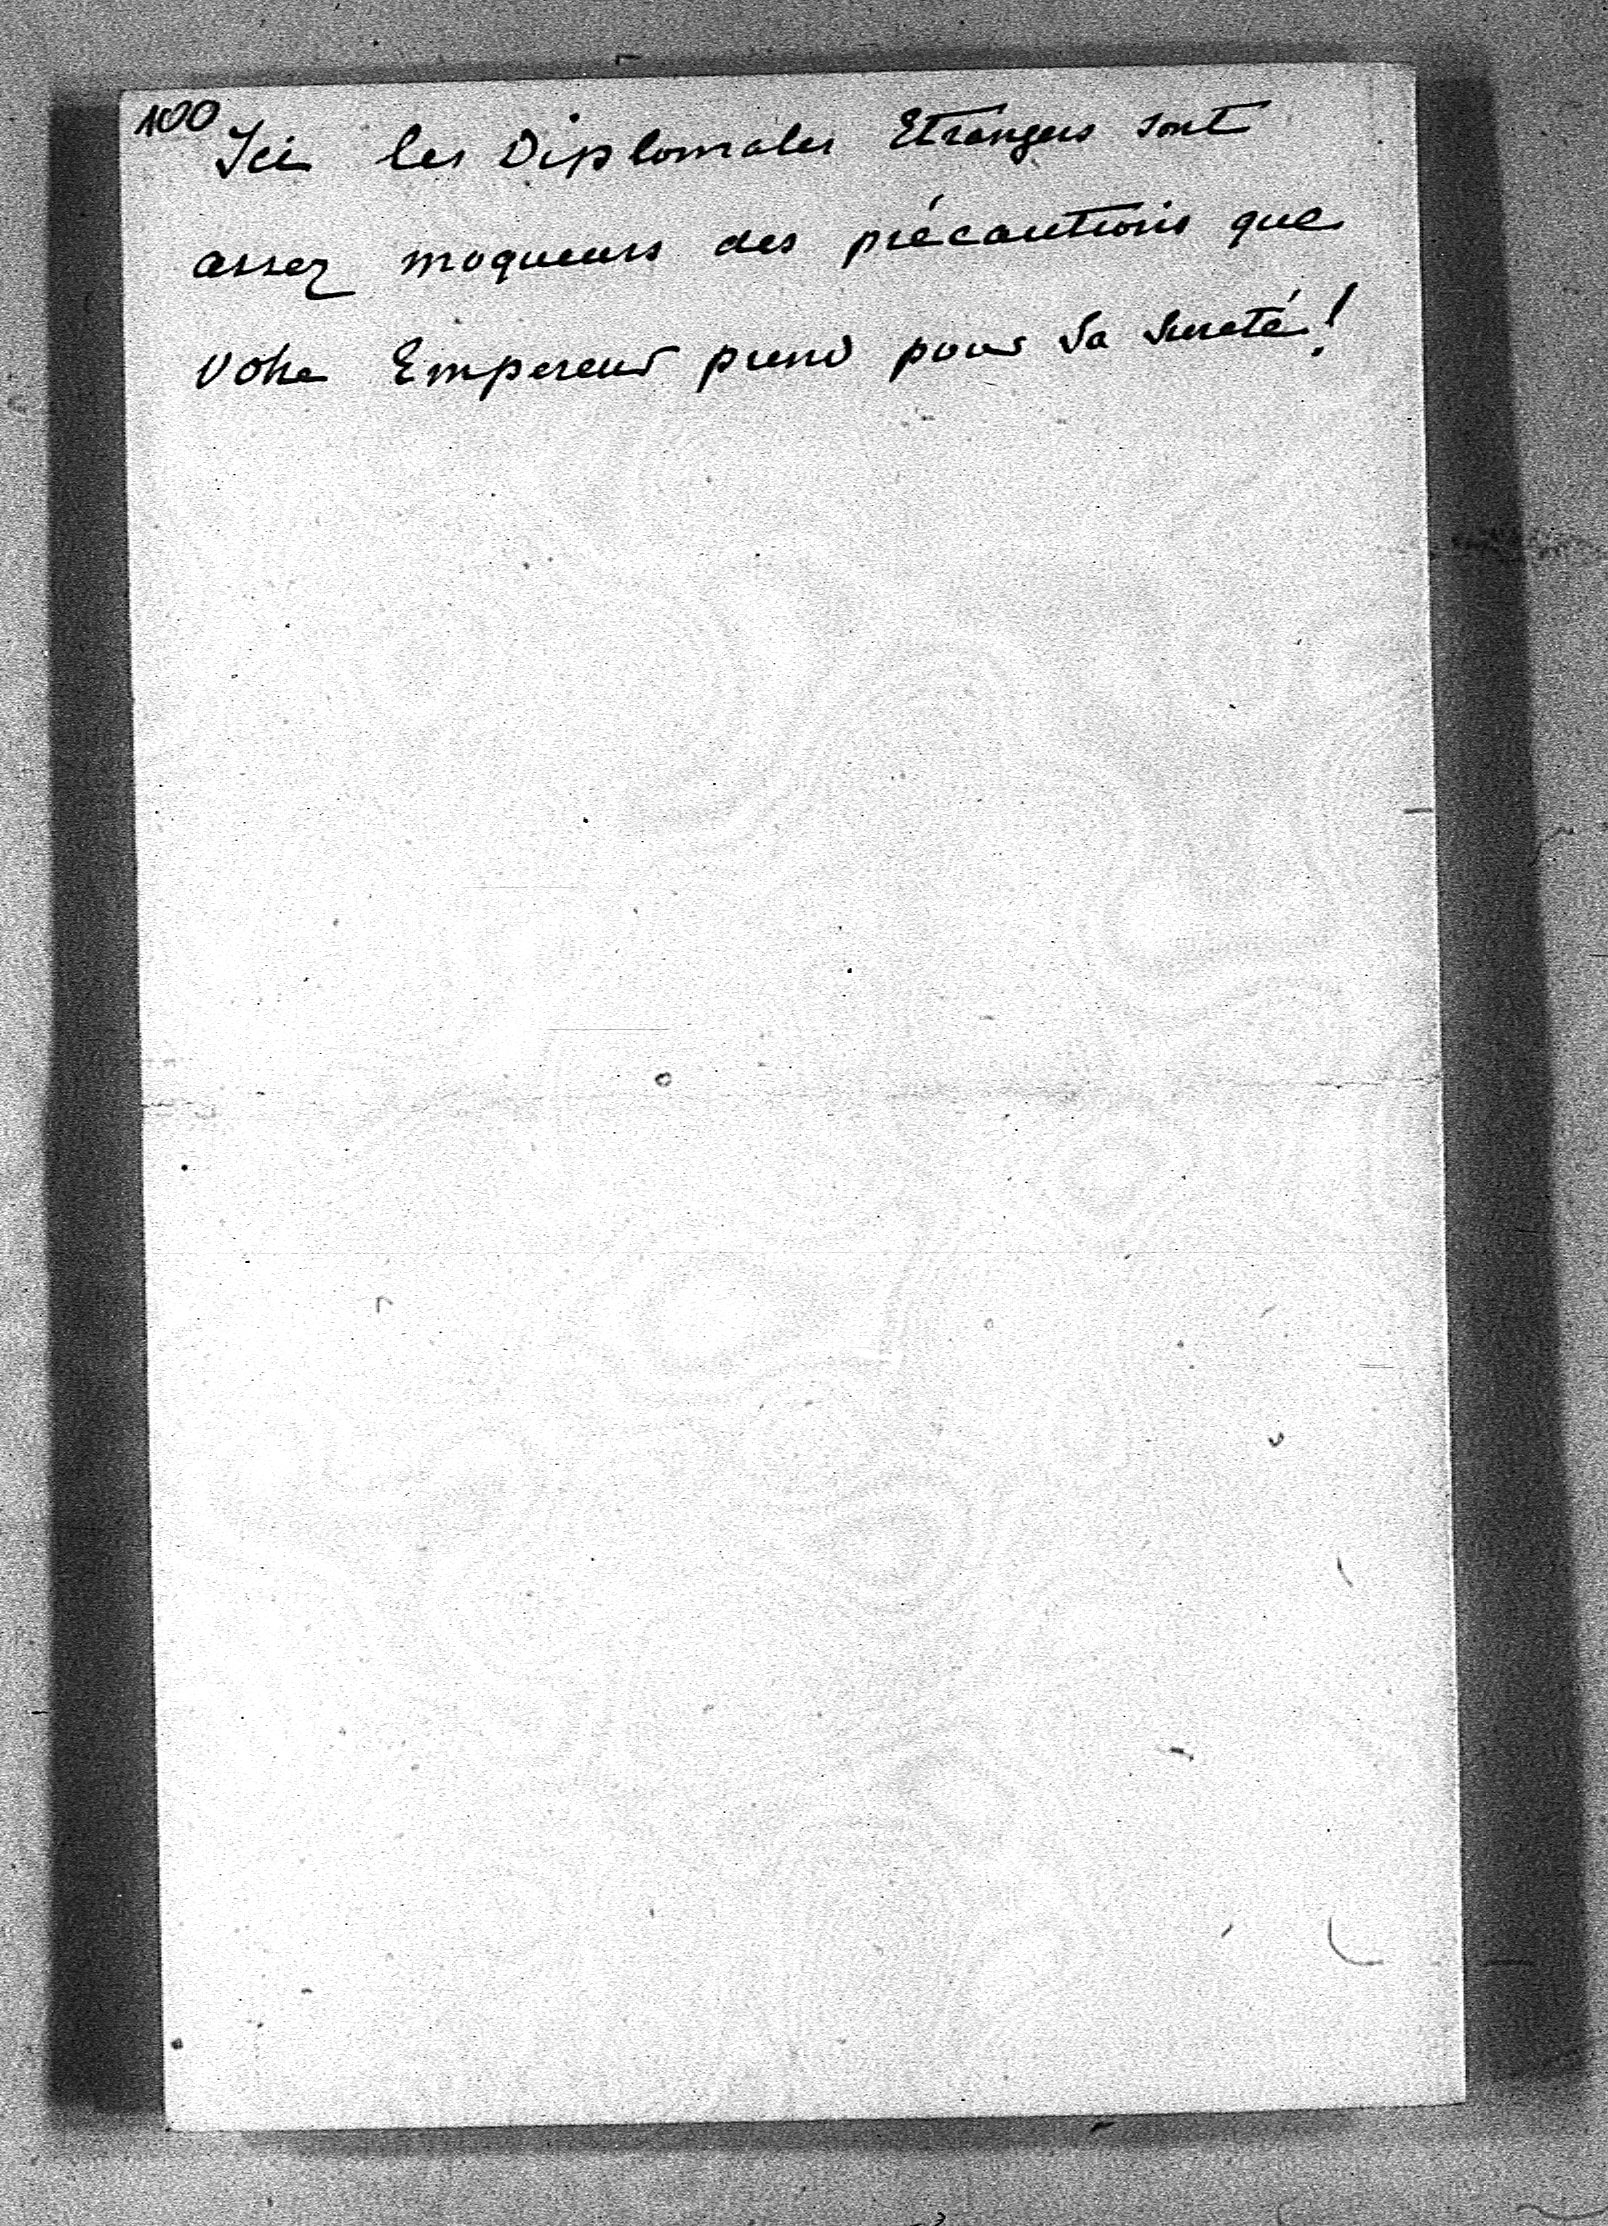 100
Ici les Diplomates Etrangers sont
assez moqueurs des précautions que
votre Empereur prend pour Sa Sureté!